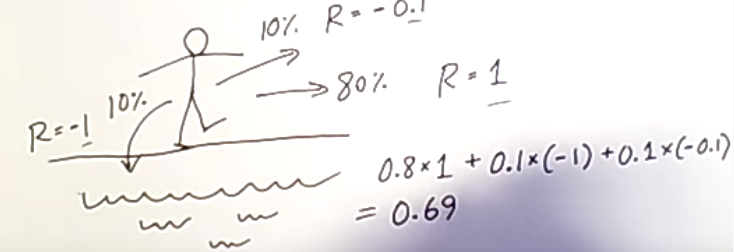 10% R = -0.1
80% R = 1
10%
R=-1
0.8×1 + 0.1×(-1) + 0.1×(-0.1)
= 0.69